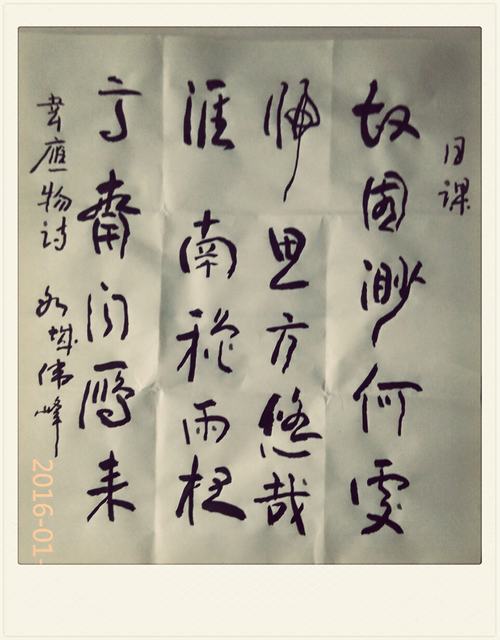 日课
故园渺何處
归思方悠哉
淮南秋雨夜
高齋闻鴈来
书應物诗 永城伟峰
2016-01-